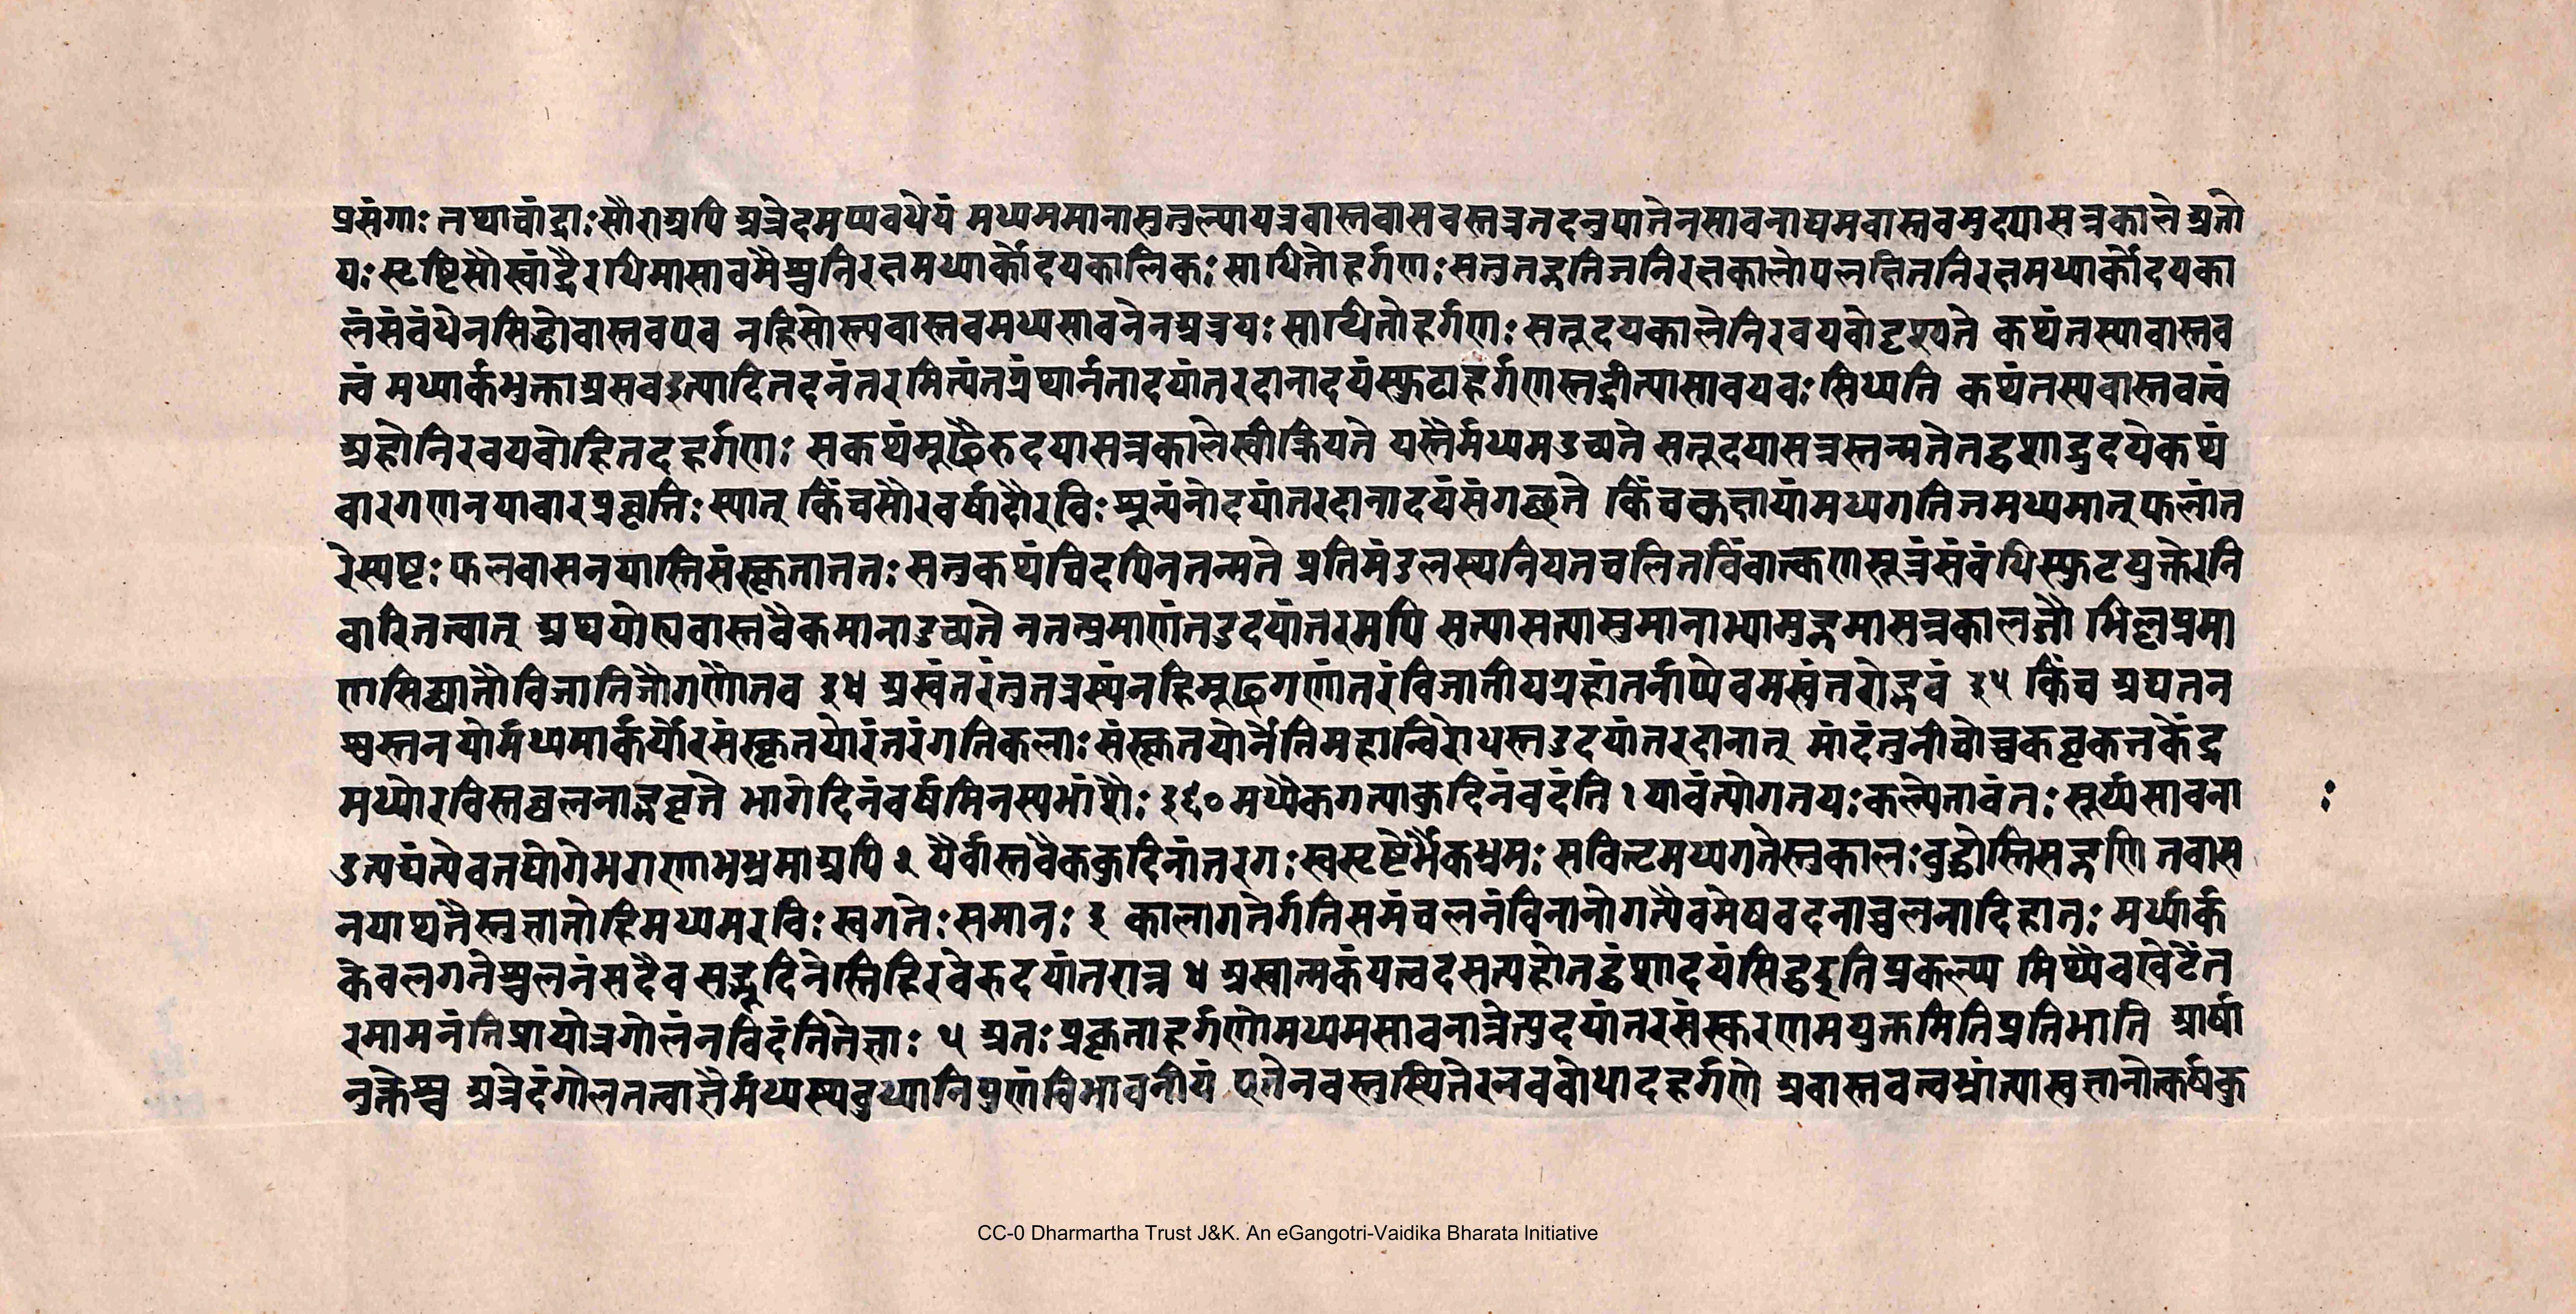 प्रसंगाः तथाचांद्राःसौराअपि अत्रेदमप्यवधेयं मध्यममानासुतुल्यायत्रवास्तवासवस्तत्रतदनुपातेनसावनाद्यमवास्तवमुदयासन्नकाले अतो
यःसृष्टिसौरचांद्रैरधिमासावमैश्चनिरक्षमध्यार्कोदयकालिकःसाधितोहर्गणःसतुतद्गतिजनिरक्षकालोपलक्षितनिरक्षमध्यार्कोदयका
लंसंबंधेनसिद्धोवास्तवएव नहिसोस्त्यवास्तवमध्यसावनेनअत्रयःसाधितोहर्गणःसतूदयकालेनिरवयवोदृश्यते कथंतस्यावास्तव
त्वं मध्यार्कभुक्ताअसवइत्यादितदनंतरमित्यंतग्रंथार्नतादयांतरदानादयंस्फुटाहर्गणस्तद्रीत्यासावयवःसिध्यति कथंतस्यवास्तवत्वं
अहोनिरवयवोहितदहर्गणः सकथंमूढैरुदयासन्नकालेस्वीक्रियते यस्तैर्मध्यमउच्यते सतूदयासन्नस्तन्मतेतद्वशादुदयेकथं
वारगणनयावारप्रवृत्तिःस्यात् किंचसौरवर्षादौरविःशून्यंनोदयांतरदानादयंसंगच्छते किंचकक्षायांमध्यगतिजमध्यमात्फलांत
रेस्पष्टःफलवासनयास्तिसंस्कृतातनःसतुकथंचिदपिनतन्मते प्रतिमंडलस्यनियतचलितबिंबात्कणसूत्रंसंबंधिस्फुटयुक्तेरनि
वारितत्वात् अथययोरयवास्तवैकमानाउच्यते नतत्प्रमाणंनउदयांतरमपि सत्यासत्यासुमानाभ्यामुद्गमासन्नकालजौ भिन्नप्रमा
णसिद्ध्यातौविजातिजौगणौतव ३४ अस्वंतरंतुतत्रस्यंनहिमूढगणांतरंविजातीयग्रहांतर्नाप्येवमस्वंतरोद्भवं ३५ किंच अद्यतन
श्वस्तनयोर्मध्यमार्कयोरसंस्कृतयोरंतरंगतिकलाःसंस्कृतयोर्नेतिमहान्विरोधस्तउदयांतरदानात् मांदंतुनीचोच्चकवृकत्तकेंद्र
मध्योरविस्तच्चलनाद्भवृत्ते भागेदिनंवर्षमिनस्यभांशैः३६०मध्यैकगत्याकुदिनंवदंति १ यावंत्योगतयःकल्पेतावंतःसूर्यसावना
उत्पद्यंत्येवतद्योगेभगणाभभ्रमाअपि २ यैर्वास्तवैककुदिनांतरगःस्वसृष्टेर्भैकभ्रमःसविलमध्यगतेस्तुकालःवुद्धोस्तिसद्गणितवास
नयाथतैस्तुज्ञातोहिमध्यमरविःस्वगतेःसमानः ३ कालागतेर्गतिसमंचलनंविनानोगत्यैवमेषवदनाच्चलनादिहातःमर्ध्यार्क
केवलगतेश्चलनंसदैव सद्भूदिनेस्तिहिरवेरुदयांतरान्न ४ अस्वात्मकंयत्वदसत्यहोतद्वशादयंसिद्धइतिप्रकल्प्य मिथ्यैवखेटेंत
रमामनंतिप्रायोत्रगोलंनविदंतितेज्ञाः ५ अतःप्रकृताहर्गणोमध्यमसावनान्नेत्युदयांतरसंस्करणमयुक्तमितिप्रतिभाति आर्षा
नुक्तेश्च अत्रेदंगोलतत्वाज्ञैर्मध्यस्थबुध्यानिपुणंविभावनीयं एतेनवस्तुस्थितेरनवबोधादहर्गणे अवास्तवत्वभ्रांत्यास्वज्ञानोत्कर्षकु
CC-0 Dharmartha Trust J&K. An eGangotri-Vaidika Bharata Initiative